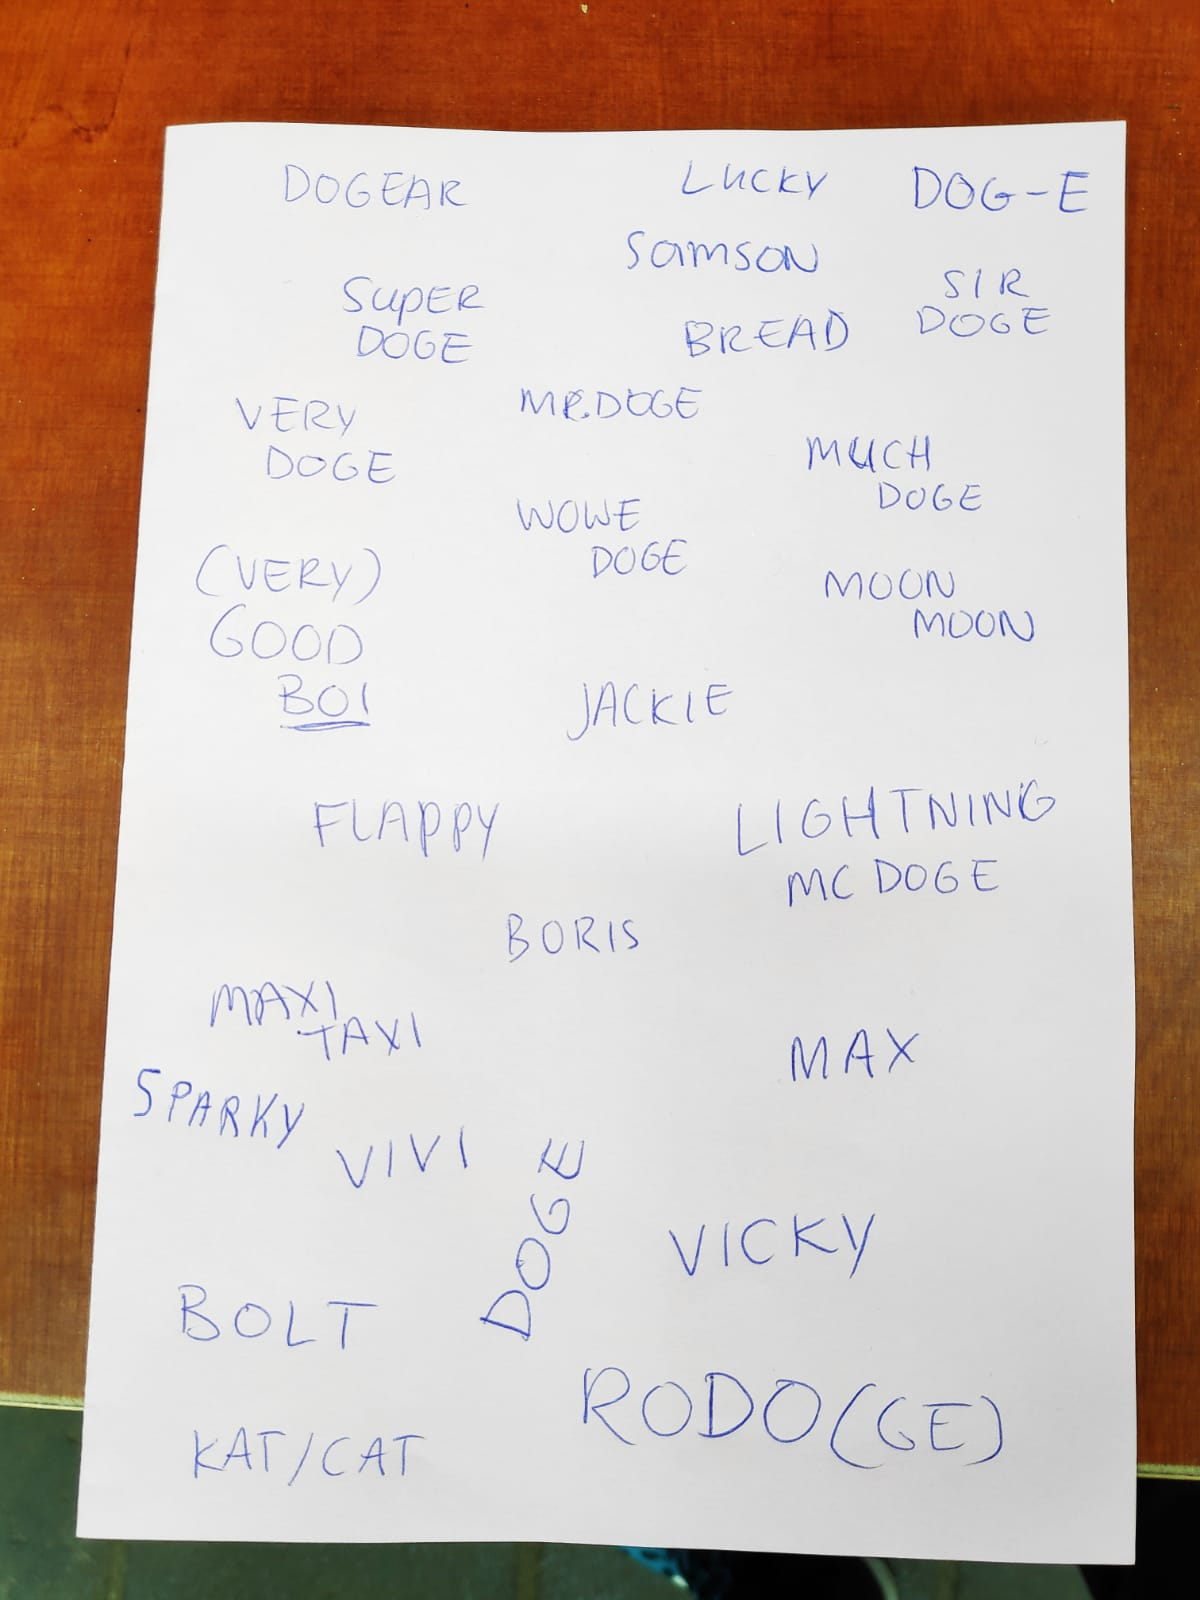 DOGEAR
LUCKY
DOG-E
SAMSON
SUPER
DOGE
SIR
DOGE
BREAD
VERY
DOGE
MR.DOGE
MUCH
DOGE
WOWE
DOGE
(VERY)
GOOD
BOI
MOON
MOON
JACKIE
FLAPPY
LIGHTNING
MC DOGE
BORIS
MAXI
TAXI
MAX
SPARKY
VIVI
DOGE
VICKY
BOLT
RODO(GE)
KAT/CAT